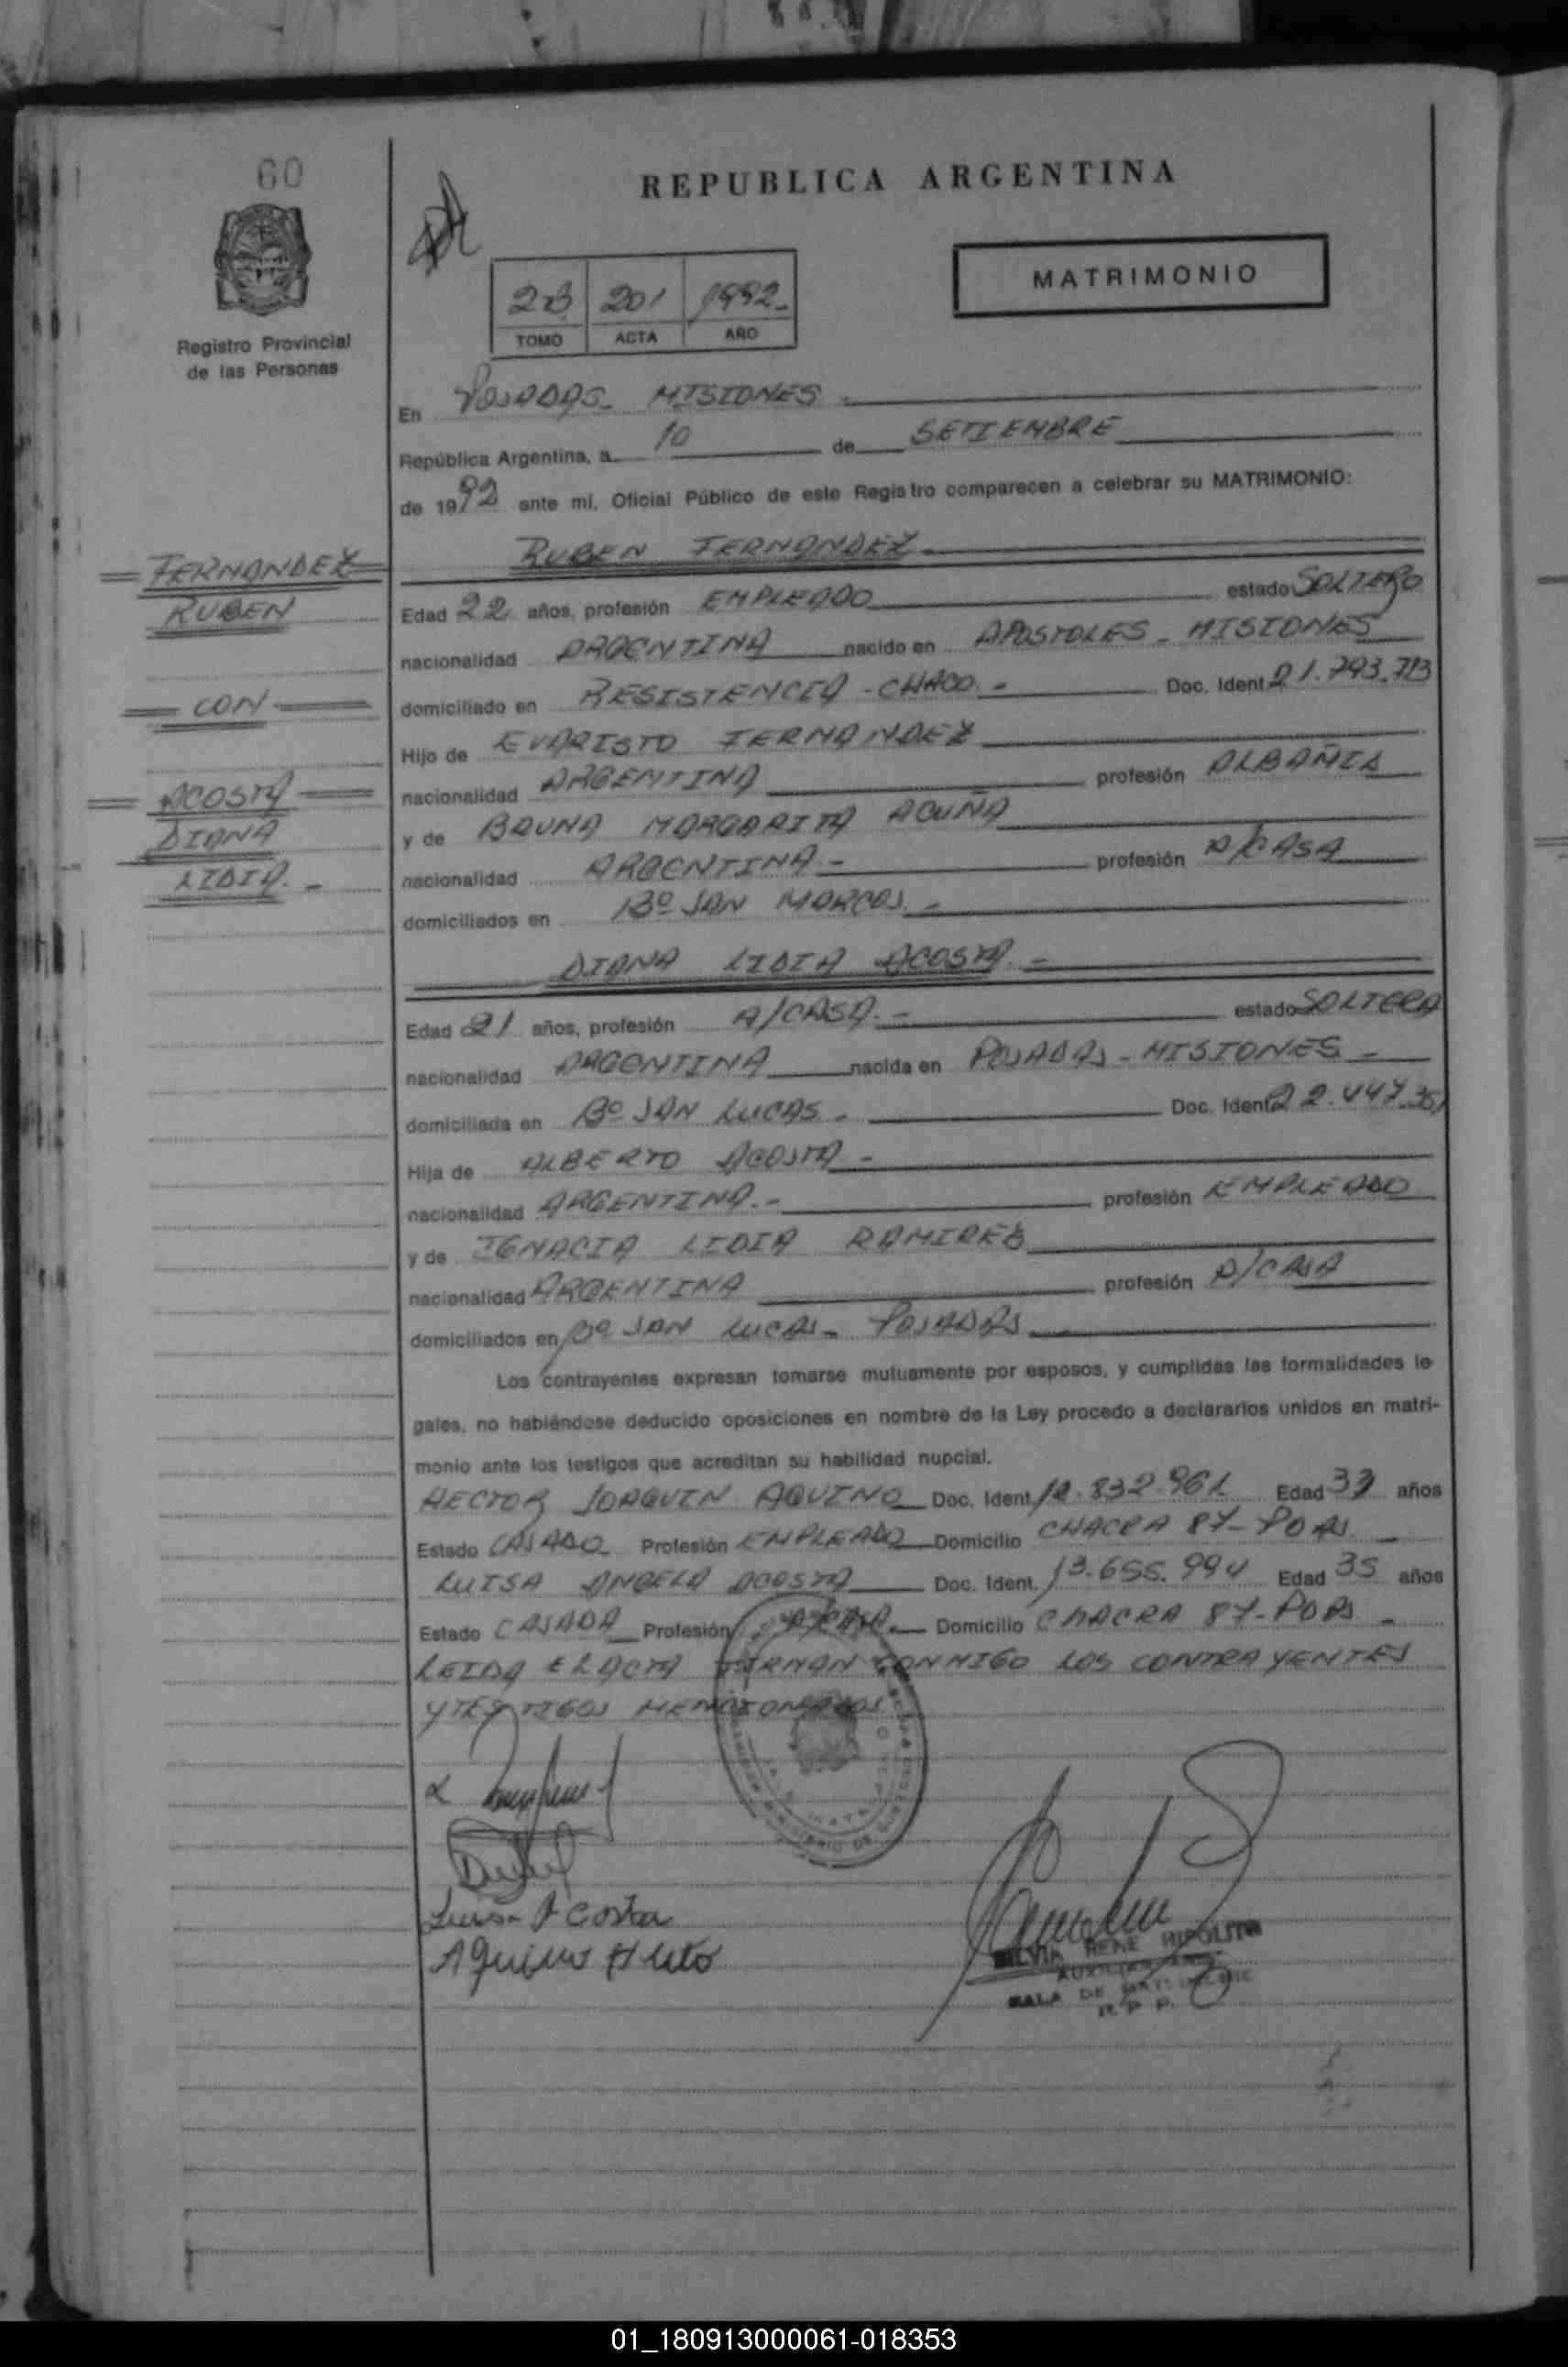 60
REPUBLICA ARGENTINA
MATRIMONIO
201 1992
TOMO ACTA AÑO
Registro Provincial
de las Personas
En POSADAS - MISIONES
República Argentina, a 10 de SETIEMBRE
de 1992 ante mi, Oficial Público de este Registro comparecen a celebrar su MATRIMONIO:
FERNANDEZ
RUBEN
CON
ACOSTA
DIANA
LIDIA.-
RUBEN FERNANDEZ
Edad 22 años, profesión EMPLEADO estado SOLTERO
nacionalidad ARGENTINA nacido en APOSTOLES - MISIONES
domiciliado en RESISTENCIA - CHACO.- Doc. Ident. 21.793.713
Hijo de EVARISTO FERNANDEZ
nacionalidad ARGENTINA profesión ALBAÑIL
y de BRUNA MARGARITA ACUÑA
nacionalidad ARGENTINA.- profesión A/CASA
domiciliados en Bº SAN MARCOS.-
DIANA LIDIA ACOSTA.-
Edad 21 años, profesión A/CASA.- estado SOLTERA
nacionalidad ARGENTINA nacida en POSADAS - MISIONES -
domiciliada en Bº SAN LUCAS. Doc. Ident. 22.447.
Hija de ALBERTO ACOSTA -
nacionalidad ARGENTINA.- profesión EMPLEADO
y de IGNACIA LIDIA RAMIREZ
nacionalidad ARGENTINA profesión A/CASA
domiciliados en Bº SAN LUCAS - POSADAS
Los contrayentes expresan tomarse mutuamente por esposos, y cumplidas las formalidades le-
gales, no habiéndose deducido oposiciones en nombre de la Ley procedo a declararlos unidos en matri-
monio ante los testigos que acreditan su habilidad nupcial.
HECTOR JOAQUIN AQUINO Doc. Ident. 12.832.961 Edad 33 años
Estado CASADO Profesión EMPLEADO Domicilio CHACRA 87 - PDAS
LUISA ANGELA ACOSTA Doc. Ident. 13.655.994 Edad 35 años
Estado CASADA Profesión A/CASA.- Domicilio CHACRA 87 - PDAS -
LEIDA EL ACTA FIRMAN CONMIGO LOS CONTRAYENTES
Y TESTIGOS MENCIONADOS
Luisa Acosta
Aquino
SILVIA RENE HIPOLITA
SALA DE
R. P. P.
01_180913000061-018353